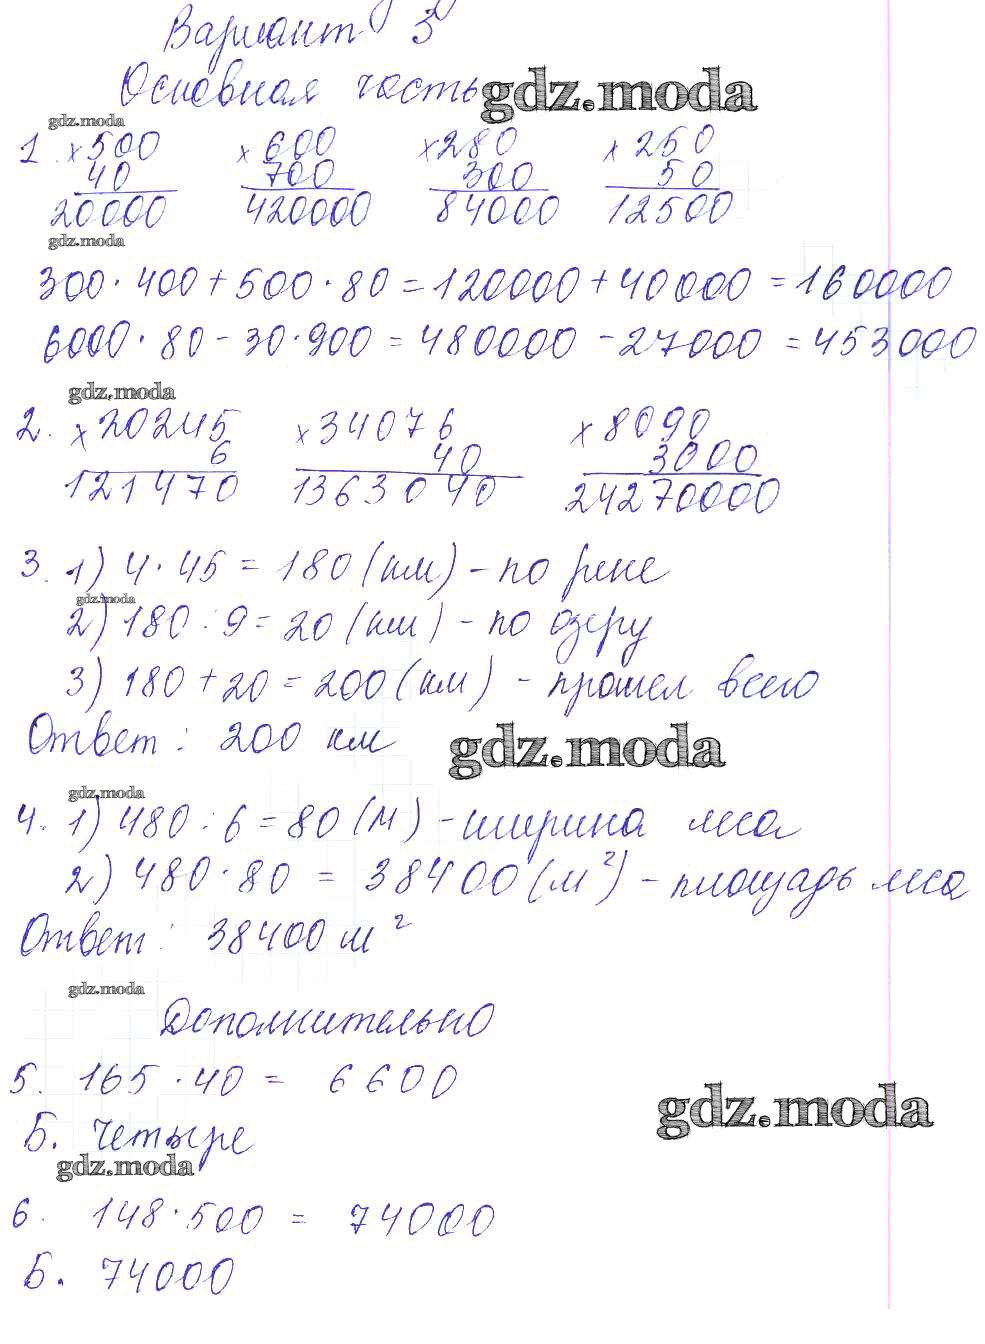 Вариант 3
Основная часть gdz.moda
gdz.moda
1. ×500 ×600 ×280 ×250
40 700 300 50
20000 420000 84000 12500
gdz.moda
300·400+500·80=120000+40000=160000
6000·80-30·900=480000-27000=453000
gdz.moda
2. ×20245 ×34076 ×8090
6 40 3000
121470 1363040 24270000
3. 1) 4·45=180(км)-по реке
gdz.moda
2) 180:9=20(км)-по озеру
3) 180+20=200(км)-прошел всего
Ответ: 200 км gdz.moda
gdz.moda
4. 1) 480:6=80(м)-ширина леса
2) 480·80=38400(м²)-площадь леса
Ответ: 38400 м²
gdz.moda
Дополнительно
5. 165·40= 6600
gdz.moda
Б. Четыре
gdz.moda
6. 148·500=74000
Б. 74000